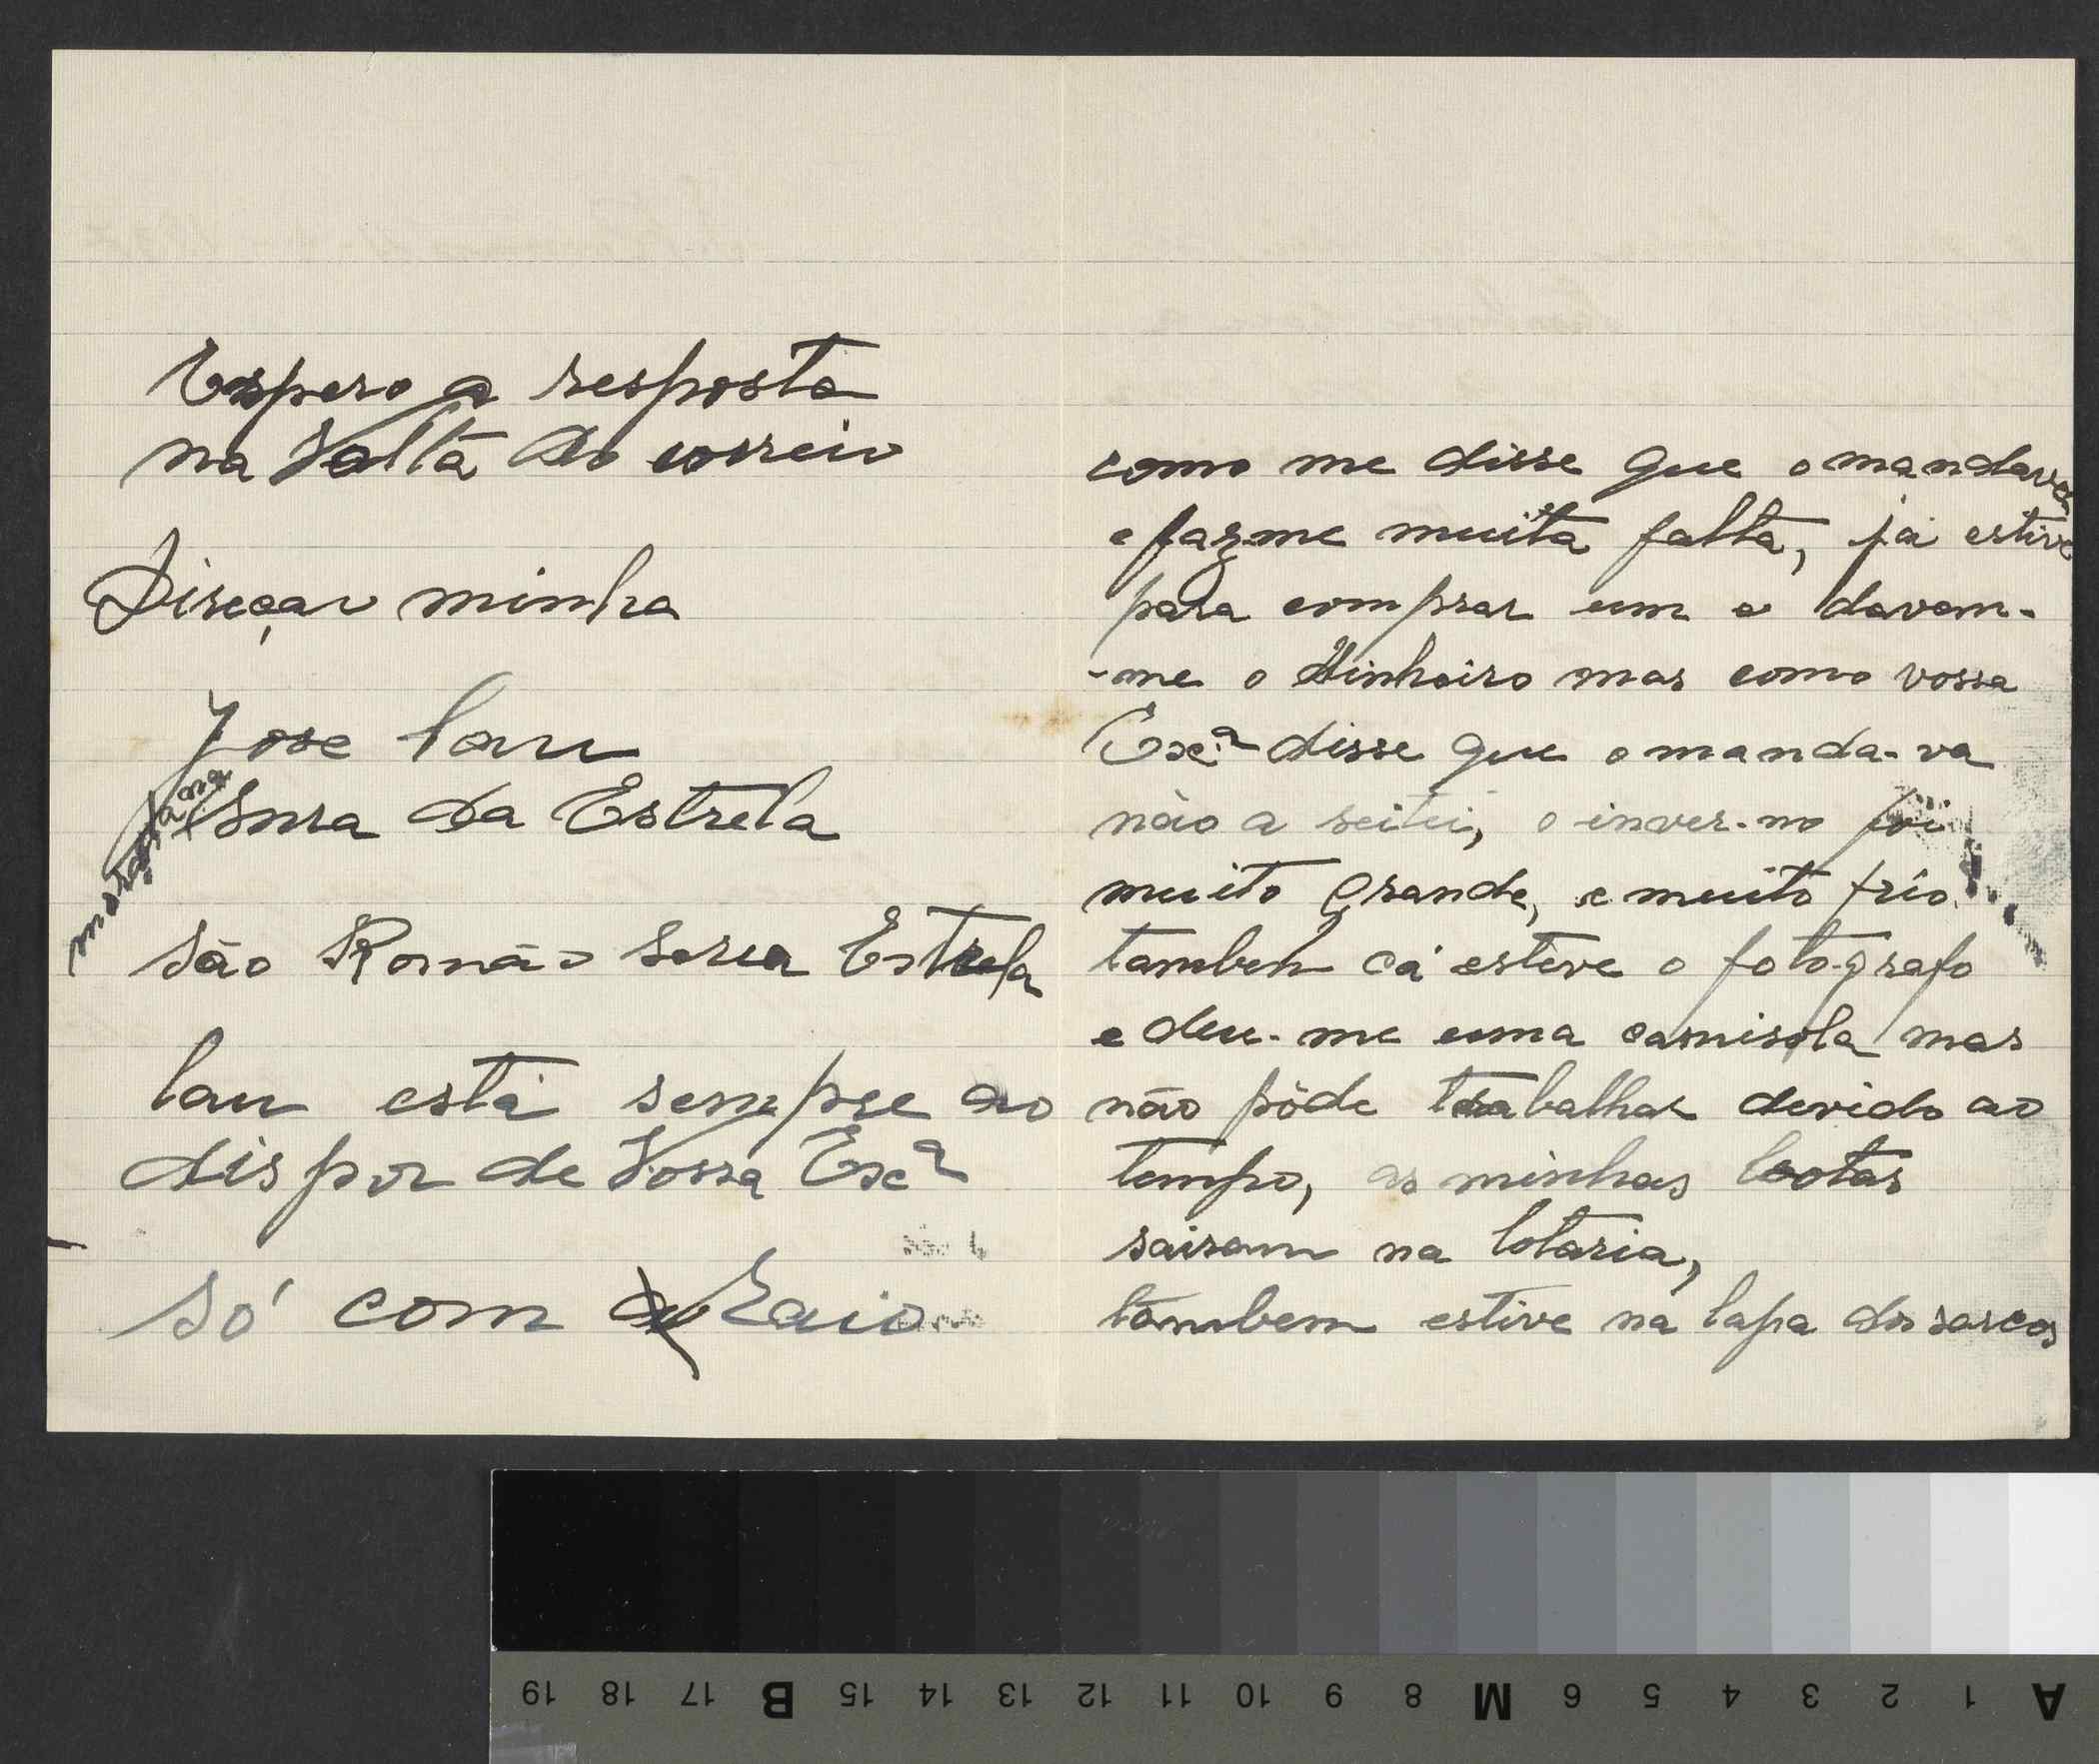 Espero a resposta
na Volta do correio
Direcçao minha
Jose Lau
Serra da Estrela
São Romão Serra Estrela
Lau está sempre ao
dispor de Vossa Exª
só com
como me disse que o mandava
e faz-me muita falta, já estive
para comprar um e davam-
-me o dinheiro mas como vossa
Exª disse que o manda-va
não a seitei, o inver-no foi
muito grande, e muito frio
tambem cá esteve o foto-grafo
e deu-me uma camisola mas
não pôde trabalhar devido ao
tempo, as minhas botas
sairam na lotaria,
tambem estive na lapa dos
A 1 2 3 4 5 6 M 8 9 10 11 12 13 14 15 B 17 18 19